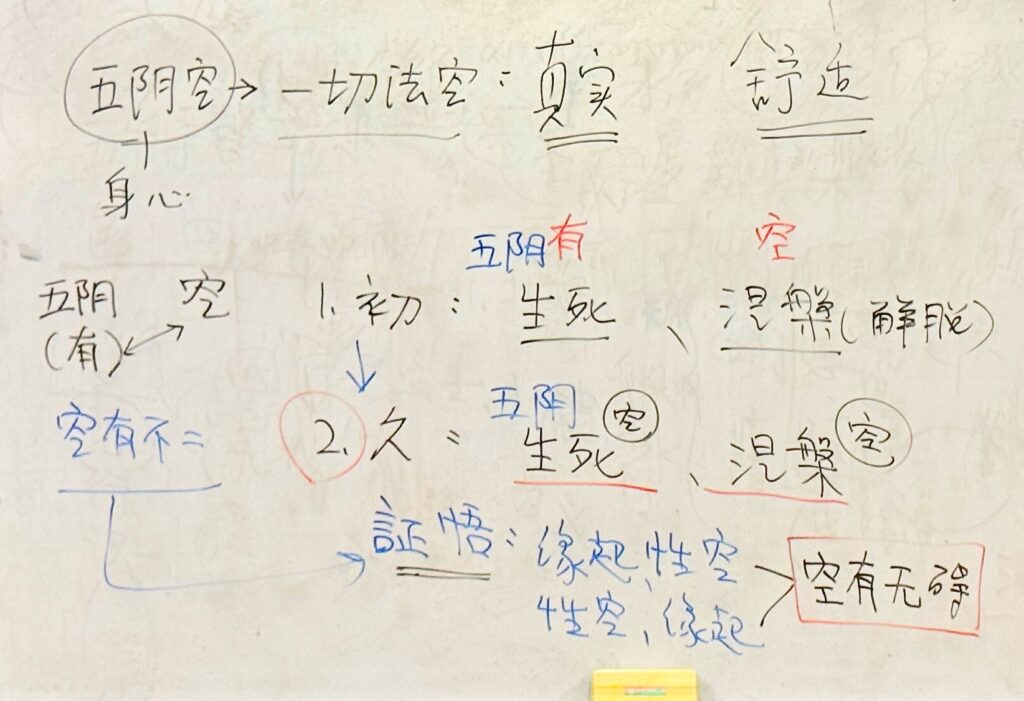 五阴空→一切法空：真实 舒适
身心
五阴有 空
五阴 空 1.初：生死、涅槃(解脱)
(有)
五阴 空 空
空有不二 2.久：生死、涅槃
証悟：缘起、性空
性空、缘起
空有无碍